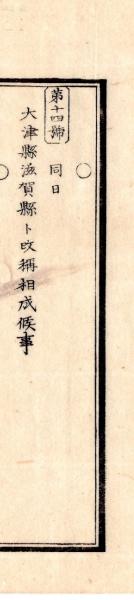 ○
第十四號 同日
大津縣滋賀縣ト改稱相成候事